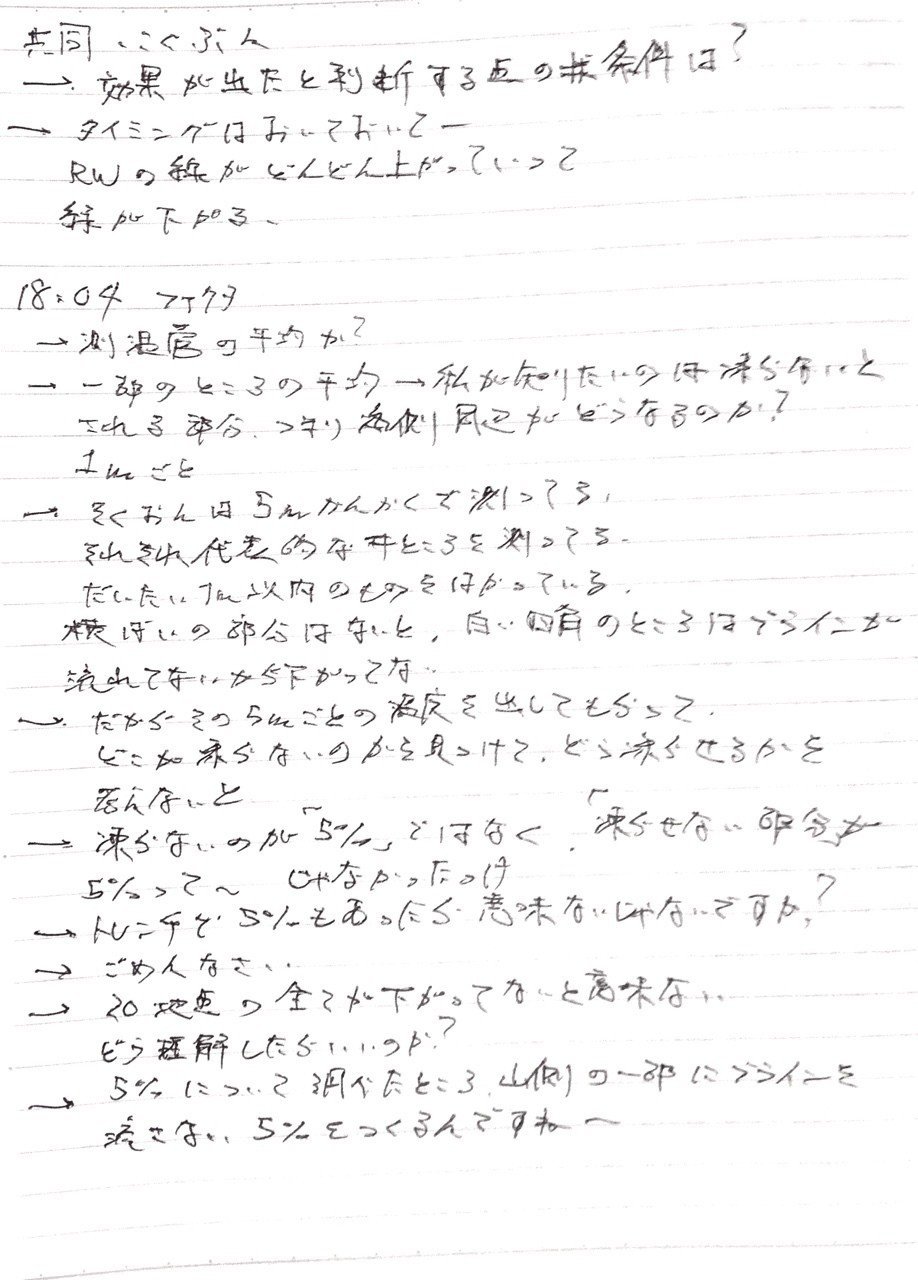 共同、こくぶん
→ 効果が出たと判断する点の条件は?
→ タイミングはおいておいてー
RWの線がどんどん上がっていって
線が下がる、
18:04 フェクタ
→ 測温管の平均か?
→ 一部のところの平均→私が知りたいのは凍らないと
される部分、つまり海側周辺がどうなるのか?
1mごと
→ そくおんは5mかんかくで測ってる、
それぞれ代表的なところを測ってる。
だいたい1m以内のものをはかっている、
横ばいの部分はないと、白い四角のところはブラインが
流れてないから下がってない
→ だからその5mごとの温度を出してもらって、
どこが凍らないのかを見つけて、どう凍らせるかを
考えないと
→ 凍らないのが「5%」ではなく、「凍らせない部分が
5%って〜 じゃなかったっけ
→ トレンチで5%もあったら意味ないじゃないですか?
→ ごめんなさい、
→ 20地点の全てが下がってないと意味ない
どう理解したらいいのか?
→ 5%について調べたところ、山側の一部にブラインを
流さない、5%をつくるんですね〜